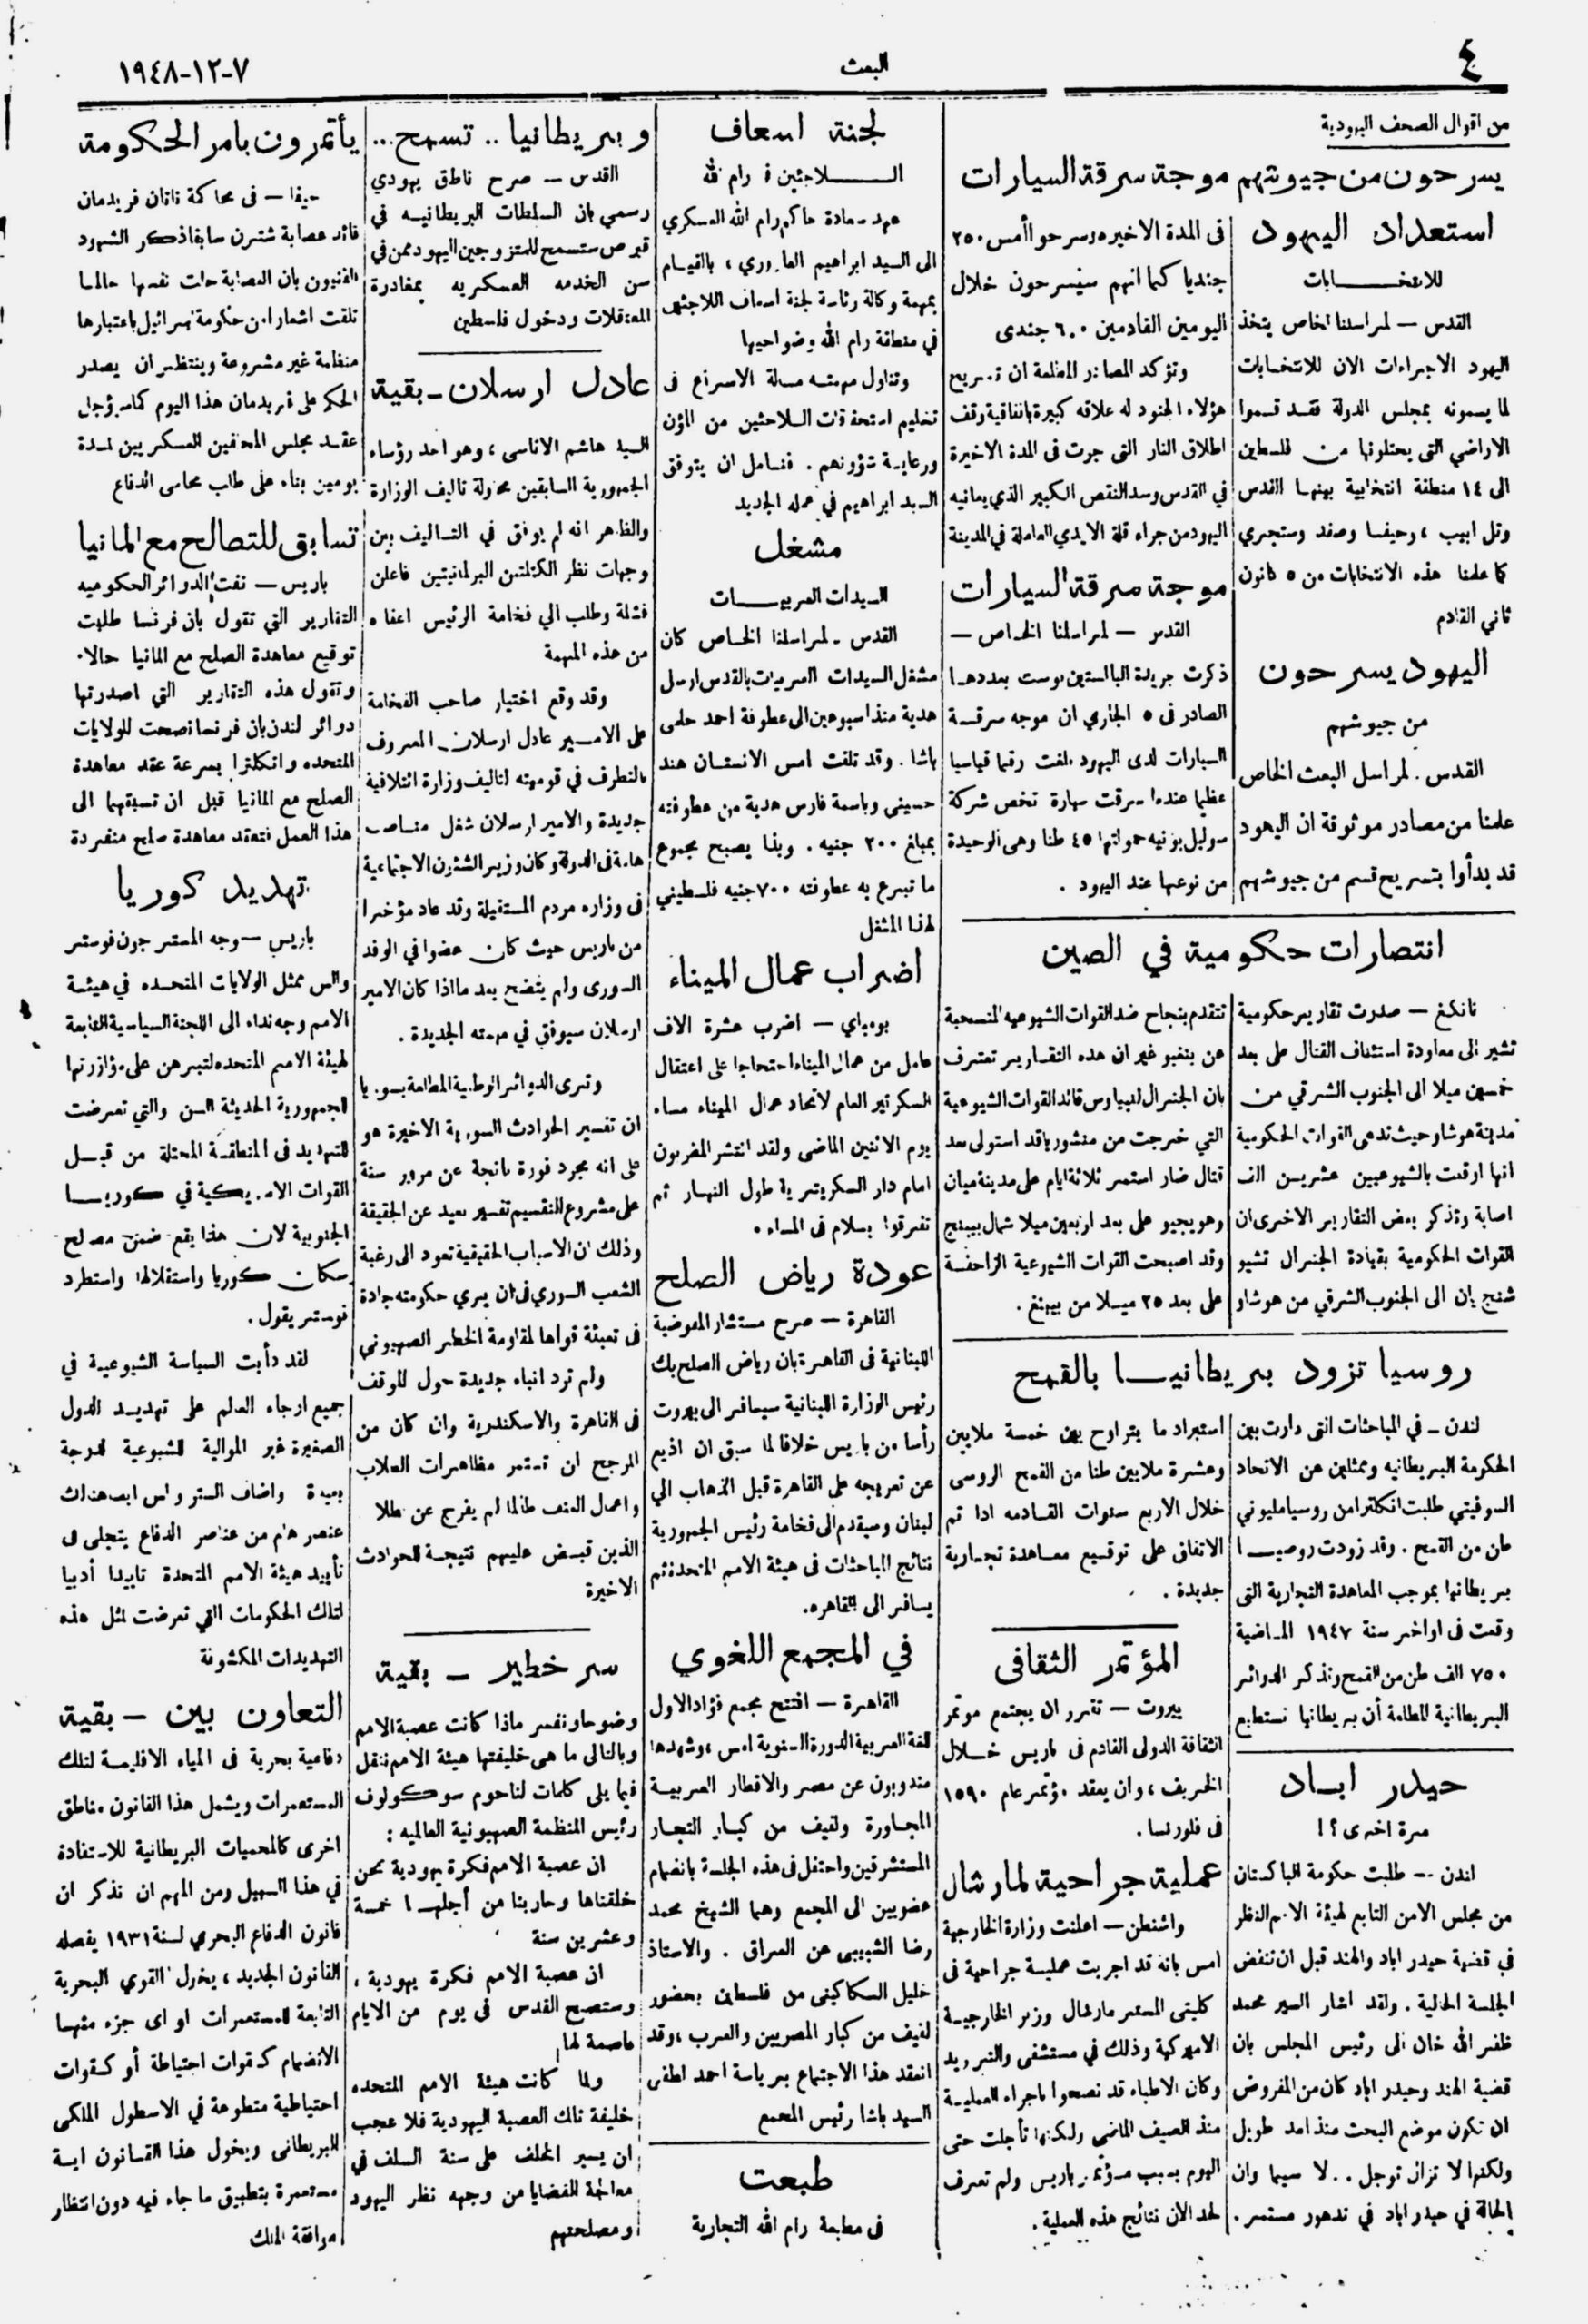 ٤
البعث
٧-١٢-١٩٤٨
من اقوال الصحف اليهودية
يسرحون من جيوشهم موجة سرقة السيارات
استعداد اليهود
للانتخابات
القدس – لمراسلنا الخاص يتخذ
اليهود الاجراءات الان للانتخابات
لما يسمونه بمجلس الدولة فقد قسموا
الاراضي التى يحتلونها من فلسطين
الى ١٤ منطقة انتخابية بينها القدس
وتل ابيب ، وحيفا وصفد وستجري
كما علمنا هذه الانتخابات من ٥ كانون
ثاني القادم
اليهود يسرحون
من جيوشهم
القدس . لمراسل البعث الخاص
علمنا من مصادر موثوقة ان اليهود
قد بدأوا بتسريح قسم من جيوشهم
فى المدة الاخيره وسرحوا أمس ٢٥٠
جنديا كما انهم سيسرحون خلال
اليومين القادمين ٦٠٠ جندى
وتؤكد المصادر المطلعة ان تسريح
هؤلاء الجنود له علاقه كبيرة باتفاقية وقف
اطلاق النار التى جرت فى المدة الاخيرة
في القدس وسد النقص الكبير الذي يعانيه
اليهود من جراء قلة الايدي العاملة في المدينة
موجة سرقة السيارات
القدس – لمراسلنا الخاص –
ذكرت جريدة البالستين بوست بعددها
الصادر فى ٥ الجاري ان موجه سرقة
السيارات لدى اليهود بلغت رقما قياسيا
عظيما عندما سرقت سيارة تخص شركة
سوليل بونيه حمولتها ٤٥ طنا وهى الوحيدة
من نوعها عند اليهود .
انتصارات حكومية في الصين
نانكنغ – صدرت تقارير حكومية
تشير الى معاودة استئناف القتال على بعد
خمسين ميلا الى الجنوب الشرقي من
مدينة هوشاو حيث تدعى القوات الحكومية
انها اوقعت بالشيوعيين عشرين الف
اصابة وتذكر بعض التقارير الاخرى ان
القوات الحكومية بقيادة الجنرال تشيو
شنج يان الى الجنوب الشرقي من هوشاو
تتقدم بنجاح ضد القوات الشيوعيه المنسحبة
عن بنغبو غير ان هذه التقارير تعترف
بان الجنرال لينبياوس قائد القوات الشيوعية
التي خرجت من منشوريا قد استولى بعد
قتال ضار استمر ثلاثة ايام على مدينة ميان
وهو يجيو على بعد اربعين ميلا شمال بيبينج
وقد اصبحت القوات الشيوعية الزاحفة
على بعد ٢٥ ميلا من بيبنغ .
روسيا تزود بريطانيا بالقمح
لندن – في المباحثات التى دارت بين
الحكومة البريطانيه وممثلين عن الاتحاد
السوفيتي طلبت انكلترا من روسيا مليوني
طن من القمح . وقد زودت روسيا
بريطانيا بموجب المعاهدة التجارية التى
وقعت فى اواخر سنة ١٩٤٧ الماضية
٧٥٠ الف طن من القمح وتذكر الدوائر
البريطانية المطلعة أن بريطانيا تستطيع
استيراد ما يتراوح بين خمسة ملايين
وعشرة ملايين طنا من القمح الروسى
خلال الاربع سنوات القادمه اذا تم
الاتفاق على توقيع معاهدة تجارية
جديدة .
حيدر اباد
مرة اخرى ؟ !
لندن – طلبت حكومة الباكستان
من مجلس الامن التابع لهيئة الامم النظر
في قضية حيدر اباد والهند قبل ان تنفض
الجلسة الحالية . ولقد اشار السير محمد
ظفر الله خان الى رئيس المجلس بان
قضية الهند وحيدر اباد كان من المفروض
ان تكون موضع البحث منذ امد طويل
ولكنها لا تزال توجل . . لا سيما وان
الحالة في حيدر اباد في تدهور مستمر .
المؤتمر الثقافى
بيروت – تقرر ان يجتمع موتمر
الثقافة الدولى القادم فى باريس خلال
الخريف ، وان يعقد مؤتمر عام ١٥٩٠
فى فلورنسا .
عملية جراحية لمارشال
واشنطن – اعلنت وزارة الخارجية
امس بانه قد اجريت عملية جراحية فى
كليتى المستر مارشال وزير الخارجية
الاميركية وذلك في مستشفى والتر ريد
وكان الاطباء قد نصحوا باجراء العملية
منذ الصيف الماضي ولكنها تأجلت حتى
اليوم بسبب مؤتمر باريس ولم تعرف
لحد الان نتائج هذه العملية .
لجنة اسعاف
اللاجئين في رام الله
عهد سعادة حاكم رام الله العسكري
الى السيد ابراهيم العاروري ، بالقيام
بمهمة وكالة رئاسة لجنة اسعاف اللاجئين
في منطقة رام الله وضواحيها
وتتاول مهمته مسالة الاسراع فى
تنظيم استحقاقات اللاجئين من المؤن
ورعاية شؤونهم . فنامل ان يتوفق
السيد ابراهيم في عمله الجديد
مشغل
السيدات العربيات
القدس – لمراسلنا الخاص كان
مشغل السيدات العربيات بالقدس ارسل
هدية منذ اسبوعين الى عطوفة احمد حلمى
باشا . وقد تلقت امس الانستان هند
حسيني وباسمة فارس هدية من عطوفته
بمبلغ ٢٠٠ جنيه . وبذا يصبح مجموع
ما تبرع به عطوفته ٧٠٠ جنيه فلسطيني
لهذا المشغل
اضراب عمال الميناء
بومباي – اضرب عشرة الاف
عامل من عمال الميناء احتجاجا على اعتقال
السكرتير العام لاتحاد عمال الميناء مساء
يوم الاثنين الماضى ولقد انتشر المضربون
امام دار السكريترية طول النهار ثم
تفرقوا بسلام فى المساء .
عودة رياض الصلح
القاهرة – صرح مستشار المفوضية
اللبنانية فى القاهرة بان رياض الصلح بك
رئيس الوزارة اللبنانية سيسافر الى بيروت
رأسا من باريس خلافا لما سبق ان اذيع
عن تعريجه على القاهرة قبل الذهاب الي
لبنان وسيقدم الى فخامة رئيس الجمهورية
نتائج المباحثات فى هيئة الامم المتحدة ثم
يسافر الى القاهره .
في المجمع اللغوي
القاهرة – افتتح مجمع فؤاد الاول
للغة العربية الدورة السنوية امس ، وشهدها
مندوبون عن مصر والاقطار العربية
المجاورة ولفيف من كبار التجار
المستشرقين واحتفل فى هذه الجلسة بانضمام
عضويين الى المجمع وهما الشيخ محمد
رضا الشبيبى عن العراق . والاستاذ
خليل السكاكينى من فلسطين بحضور
لفيف من كبار المصريين والعرب ، وقد
انعقد هذا الاجتماع برياسة احمد لطفى
السيد باشا رئيس المجمع
طبعت
فى مطبعة رام الله التجارية
وبريطانيا .. تسمح ...
القدس – صرح ناطق يهودي
رسمي بان السلطات البريطانيه في
قبرص ستسمح للمتزوجين اليهود ممن في
سن الخدمه العسكريه بمغادرة
المعتقلات ودخول فلسطين
عادل ارسلان – بقية
السيد هاشم الاتاسى ، وهو احد رؤساء
الجمهورية السابقين محاولة تاليف الوزارة
والظاهر انه لم يوفق في التاليف بين
وجهات نظر الكتلتين البرلمانيتين فاعلن
فشلة وطلب الي فخامة الرئيس اعفاءه
من هذه المهمة
وقد وقع اختيار صاحب الفخامة
على الامير عادل ارسلان المعروف
بالتطرف في قوميته لتاليف وزارة ائتلافية
جديدة والامير ارسلان شغل مناصب
هامة فى الدولة وكان وزير الشئون الاجتماعية
فى وزاره مردم المستقيلة وقد عاد مؤخرا
من باريس حيث كان عضوا في الوفد
السورى ولم يتضح بعد ما اذا كان الامير
ارسلان سيوفق في مهمته الجديدة .
وترى الدوائر الوطنية المطلعة بسوريا
ان تفسير الحوادث السورية الاخيرة هو
على انه مجرد فورة ناتجة عن مرور سنة
على مشروع التقسيم تفسير بعيد عن الحقيقة
وذلك ان الاسباب الحقيقية تعود الى رغبة
الشعب السوري فى ان يري حكومته جادة
فى تعبئة قواها لمقاومة الخطر الصهيوني
ولم ترد انباء جديدة حول الموقف
فى القاهرة والاسكندرية وان كان من
المرجح ان تستمر مظاهرات الطلاب
واعمال العنف طالما لم يفرج عن
الذين قبض عليهم نتيجة للحوادث
الاخيرة
سر خطير – بقية
وضوحا ونفسر ماذا كانت عصبة الامم
وبالتالى ما هى خليفتها هيئة الامم ننقل
فيما يلى كلمات لناحوم سوكولوف
رئيس المنظمة الصهيونية العالميه :
ان عصبة الامم فكرة يهودية نحن
خلقناها وحاربنا من أجلها خمسة
وعشرين سنة
ان عصبة الامم فكرة يهودية ،
وستصبح القدس فى يوم من الايام
عاصمة لها
ولما كانت هيئة الامم المتحده
خليفة تلك العصبة اليهودية فلا عجب
ان يسير الخلف على سنة السلف في
معالجة القضايا من وجهه نظر اليهود
ومصلحتهم
يأتمرون بامر الحكومة
حيفا – فى محاكمة ناتان فريدمان
قائد عصابة شترن سابقا ذكر الشهود
الفنيون بان العصابة حلت نفسها حالما
تلقت اشعارا من حكومة اسرائيل باعتبارها
منظمة غير مشروعة وينتظر ان يصدر
الحكم على فريدمان هذا اليوم كما سيؤجل
عقد مجلس المحلفين العسكريين لمدة
يومين بناء على طلب محامى الدفاع
تسابق للتصالح مع المانيا
باريس – نفت الدوائر الحكوميه
التقارير التي تقول بان فرنسا طلبت
توقيع معاهدة الصلح مع المانيا حالا .
وتقول هذه التقارير التي اصدرتها
دوائر لندن بان فرنسا نصحت للولايات
المتحده وانكلترا بسرعة عقد معاهدة
الصلح مع المانيا قبل ان تسبقهما الى
هذا العمل فتعقد معاهدة صلح منفردة
تهديد كوريا
باريس – وجه المستر جون فوستر
دالس ممثل الولايات المتحده في هيئة
الامم وجه نداء الى اللجنة السياسية التابعة
لهيئة الامم المتحده لتبرهن على مؤازرتها
للجمهورية الحديثة السن والتي تعرضت
للتهديد فى المنطقة المحتلة من قبل
القوات الاميركية في كوريا
الجنوبية لان هذا يقع ضمن مصلح
سكان كوريا واستقلالها واستطرد
فوستر يقول .
لقد دأبت السياسة الشيوعية في
جميع ارجاء العالم على تهديد الدول
الصغيرة غير الموالية للشيوعية لدرجة
بعيدة واضاف المستر دالس ان هناك
عنصر هام من عناصر الدفاع يتجلى فى
تأييد هيئة الامم المتحدة تاييدا أدبيا
لتلك الحكومات التي تعرضت لمثل هذه
التهديدات المكشوفة
التعاون بين – بقية
دفاعية بحرية فى المياه الاقليمية لتلك
المستعمرات ويشمل هذا القانون مناطق
اخرى كالمحميات البريطانية للاستفادة
في هذا السبيل ومن المهم ان نذكر ان
قانون الدفاع البحري لسنة ١٩٣١ يفصله
القانون الجديد ، يخول القوي البحرية
التابعة للمستعمرات او اى جزء منها
الانضمام كقوات احتياطة أو كقوات
احتياطية متطوعة في الاسطول الملكى
البريطانى ويخول هذا القانون اية
مستعمرة بتطبيق ما جاء فيه دون انتظار
موافقة الملك